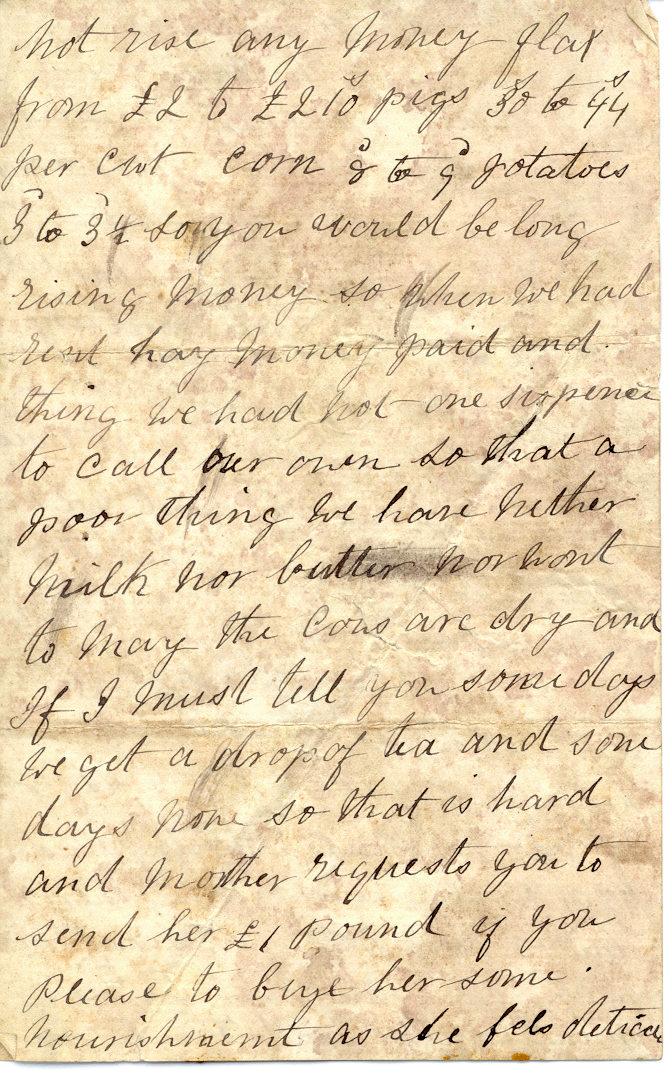 not rise any money flax
from £2 to £2 10s pigs 30s to 44s
per cwt corn 8d to 9d potatoes
3d to 3d¼ so you would be long
rising money so when we had
rent hay money paid and
thing we had not one sixpence
to call our own so that a
poor thing we have nether
milk nor butter nor wont
to may the cows are dry and
If I must tell you some days
we get a drop of tea and some
days none so that is hard
and mother requests you to
send her £1 pound if you
Please to buye her some
nourishment as she fels